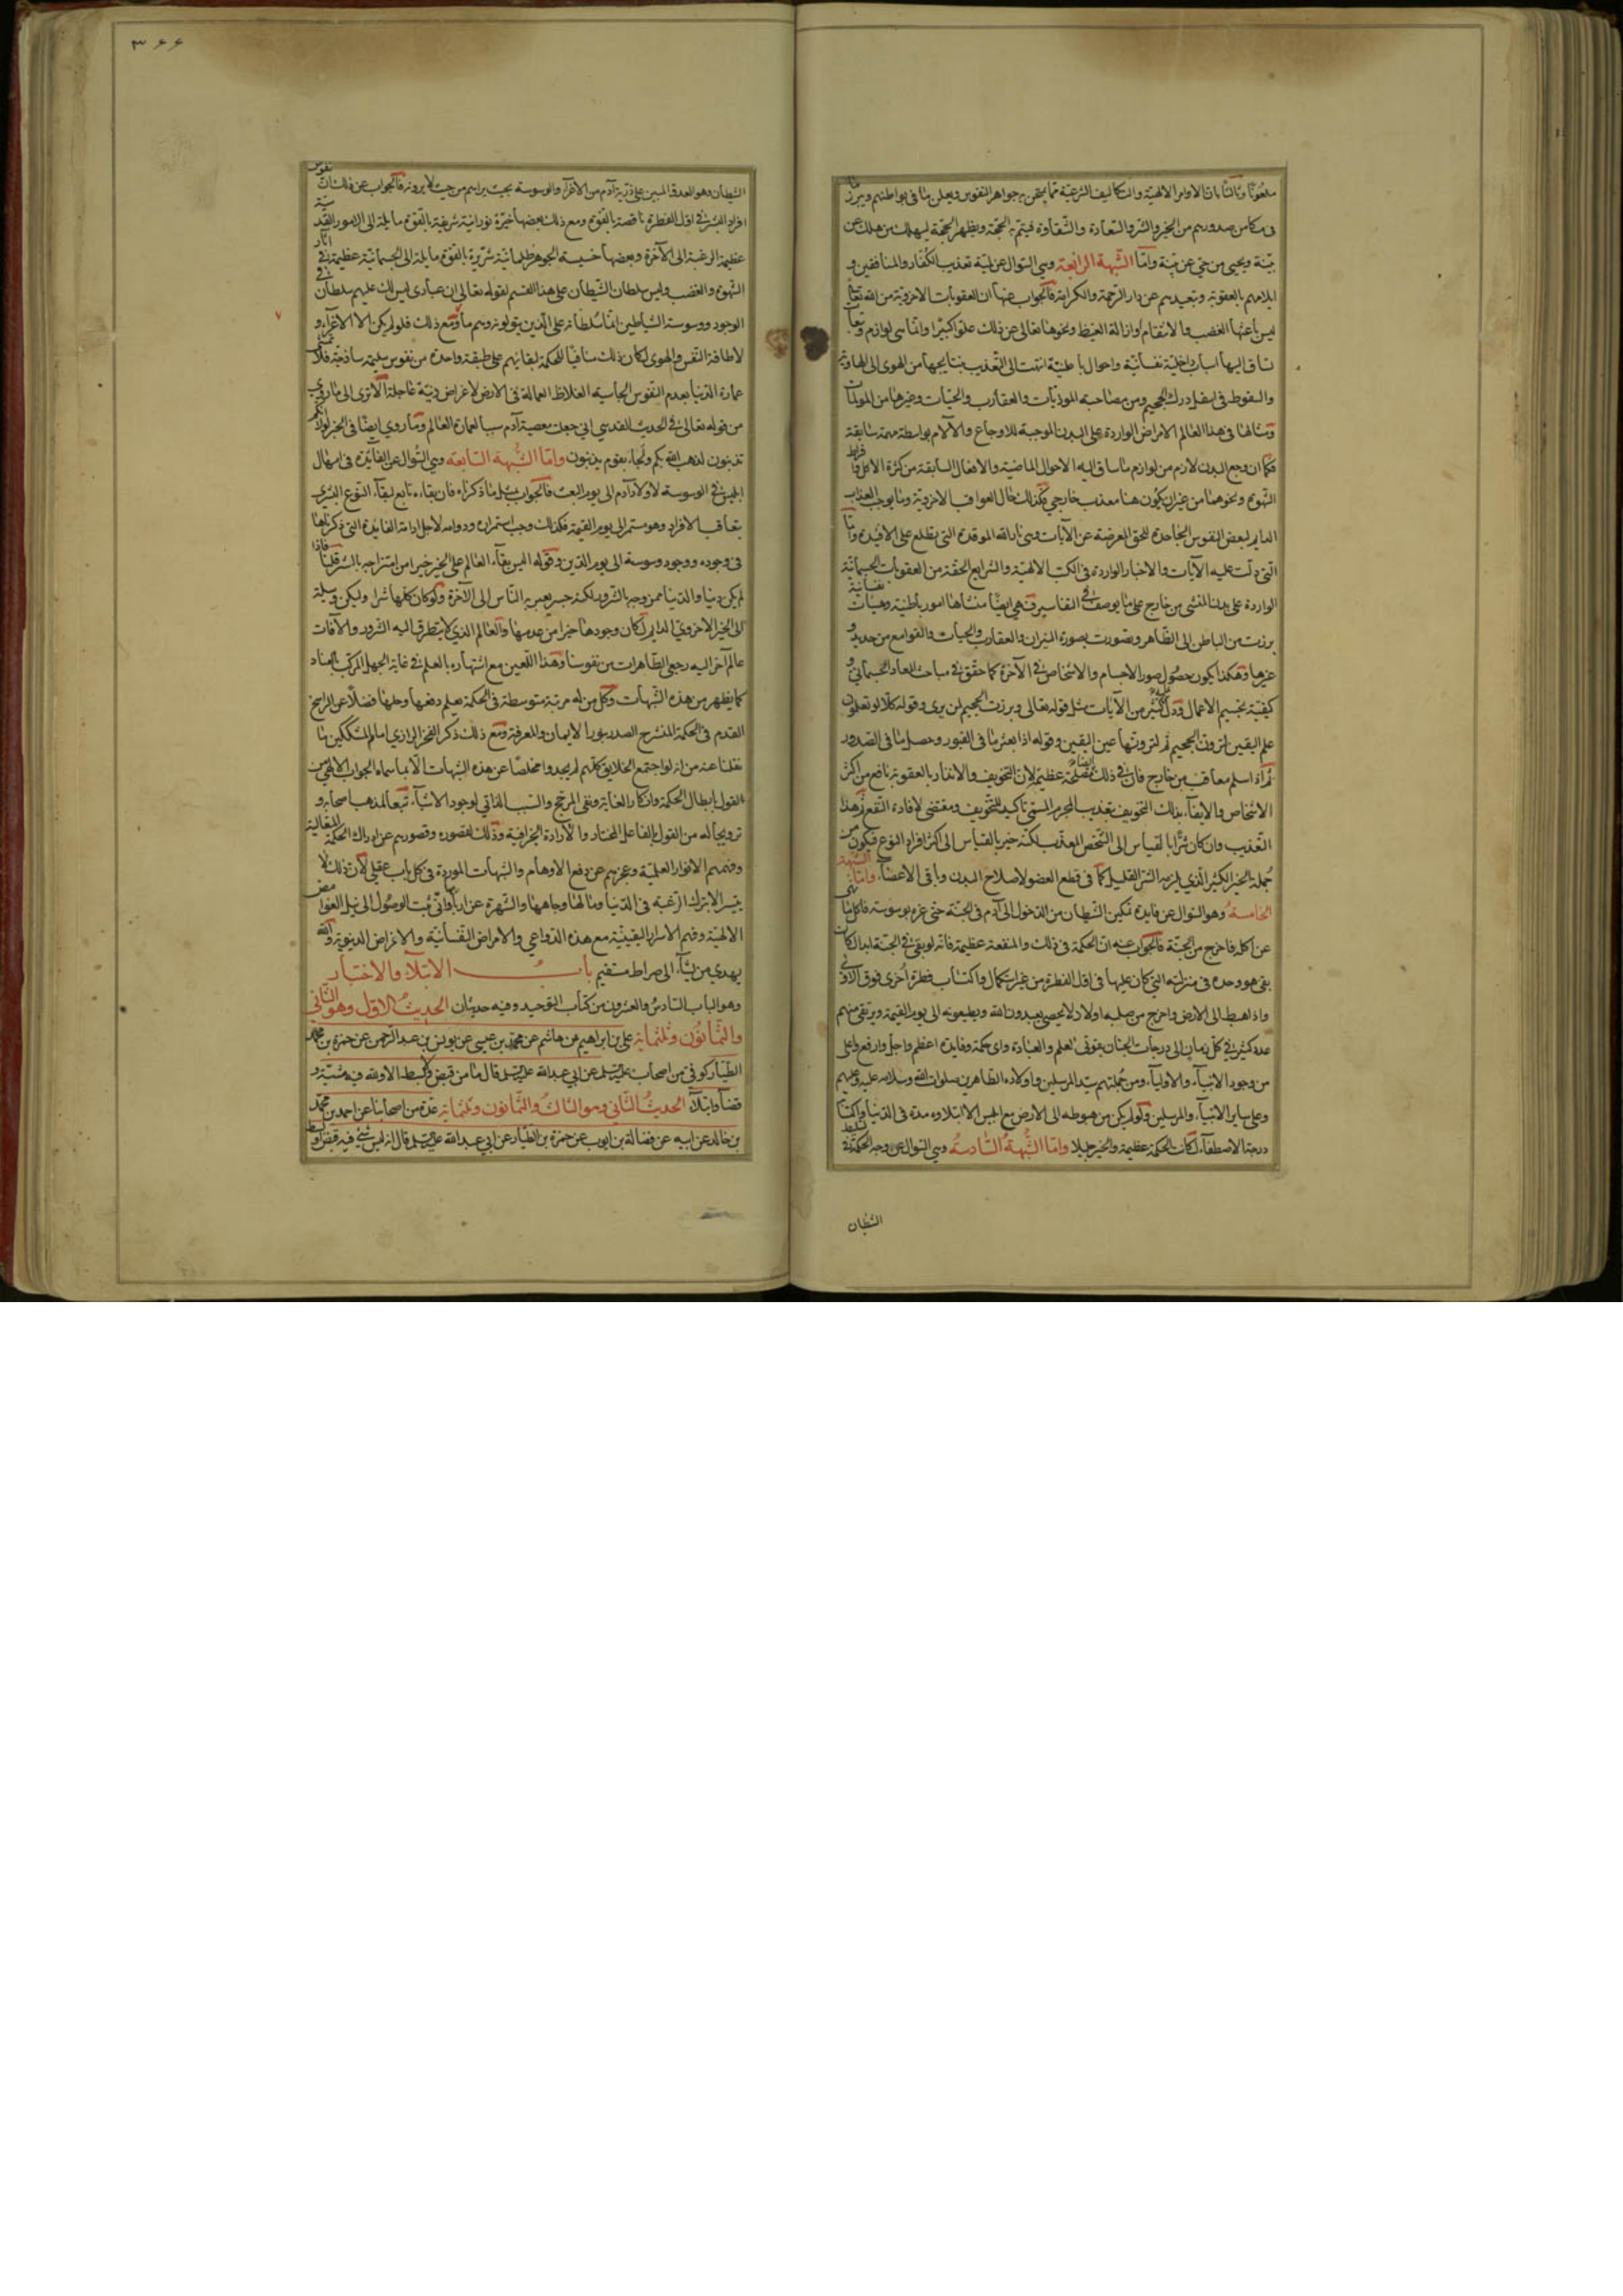 ملعونا وثالثا بان الاوامر الالهية والتكاليف الشرعية مما يمتحن به جواهر النفوس ويعلن ما في بواطنهم ويبرز ما
في مكامن صدورهم من الخير والشر والسعادة والشقاوة فيتم به الحجة ويظهر المحجة ليهلك من هلك عن
بينة ويحيى من حي عن بينة واما الشبهة الرابعة وهي السؤال عن لمية تعذيب الكفار والمنافقين و
ايلامهم بالعقوبة وتبعيدهم عن دار الرحمة والكرامة فالجواب عنها ان العقوبات الاخروية من الله تعالى
ليس باعثها الغضب والانتقام او ازالة الغيظ ونحوها تعالى عن ذلك علوا كبيرا وانما هي لوازم وتبعات
ساق اليها اسباب داخلية نفسانية واحوال باطنية انتهت الى التعذيب بنتايجها من الهوى الى الهاوية
والسقوط في اسفل درك الجحيم ومن مصاحبة الموذيات والعقارب والحيات وغيرها من المولمات
ومثالها في هذا العالم الامراض الواردة على البدن الموجبة للاوجاع والآلام بواسطة نهمة سابقة
فكما ان وجع البدن لازم من لوازم ما ساق اليه الاحوال الماضية والافعال السابقة من كثرة الاكل وافراط
الشهوة ونحوهما من غير ان يكون هنا معذب خارجي فكذلك حال العواقب الاخروية وما يوجب العذاب
الدايم لبعض النفوس الجاحدة للحق المعرضة عن الآيات وهي نار الله الموقدة التي تطلع على الافئدة واما
التي دلت عليه الآيات والاخبار الواردة في الكتب الالهية والشرايع الحقة من العقوبات الجسمانية
الواردة على بدن المسئ من خارج على ما يوصف في التفاسير فهي ايضا منشاها امور باطنية وهيات نفسانية
برزت من الباطن الى الظاهر وتصورت بصورة النيران والعقارب والحيات والقوامع من حديد و
غيرها وهكذا يكون حصول صور الاجسام والاشخاص في الآخرة كما حقق في مباحث المعاد الجسماني و
كيفية تجسيم الاعمال ودل عليه كثير من الآيات مثل قوله تعالى وبرزت الجحيم لمن يرى وقوله كلا لو تعلمون
علم اليقين لترون الجحيم ثم لترونها عين اليقين وقوله اذا بعثر ما في القبور وحصل ما في الصدور
ثم اذا سلم معاقب من خارج فان في ذلك ايضا مصلحة عظيمة لان التخويف والانذار بالعقوبة نافع من اكثر
الاشخاص والايفاء بذلك التخويف بتعذيب المجرم المسئ تاكيد للتخويف ومقتضى لافادة النفع ثم هذا
التعذيب وان كان شرا بالقياس الى الشخص المعذب لكنه خير بالقياس الى اكثر افراد النوع فيكون من
جملة الخير الكثير الذي يلزمه الشر القليل كما في قطع العضو لاصلاح البدن وباقي الاعضاء واما الشبهة
الخامسة وهو السؤال عن فايدة تمكين الشيطان من الدخول الى آدم في الجنة حتى غره بوسوسته فاكل ما نهى
عن اكله فاخرج من الجنة فالجواب عنه ان الحكمة في ذلك والمنفعة عظيمة فانه لو بقي في الجنة ابدا لكان
بقي هو وحده في منزلته التي كان عليها في اول الفطرة من غير استكمال واكتساب فطرة اخرى فوق الاولى
واذا هبط الى الارض واخرج من صلبه اولاد لا يحصى يعبدون الله ويطيعونه الى يوم القيمة ويرتقي منهم
عدد كثير في كل زمان الى درجات الجنان بقوتي العلم والعبادة واي حكمة وفايدة اعظم واجل وارفع واعلى
من وجود الانبياء والاولياء ومن جملتهم سيد المرسلين واولاده الطاهرين صلوات الله وسلامه عليه وعليهم
وعلى ساير الانبياء والمرسلين ولو لم يكن من هبوطه الى الارض مع ابليس الا ابتلاوه مدة في الدنيا واكتسابه
درجة الاصطفاء لكانت الحكمة عظيمة والخير جليلا واما الشبهة السادسة وهي السؤال عن وجه الحكمة في تسليط
الشطان
٣٦٦
الشيطان وهو العدو المبين على ذرية آدم من الاغراء والوسوسة بحيث يراهم من حيث لا يرونه فالجواب عن ذلك ان نفوس
افراد البشر في اول الفطرة ناقصة بالقوة ومع ذلك بعضها خيرة نورانية شريفة بالقوة مايلة الى الامور القدسية
عظيمة الرغبة الى الآخرة وبعضها خسيسة الجوهر ظلمانية شريرة بالقوة مايلة الى الجسمانية عظيمة في ايثار
الشهوة والغضب وليس سلطان الشيطان على هذا القسم لقوله تعالى ان عبادي ليس لك عليهم سلطان
الوجود ووسوسة الشياطين انما سلطانه على الذين يتولونه ومع ذلك فلو لم يكن الا الاغراء و
لاطاقة النفس والهوى لكان ذلك منافيا للحكمة لبقائهم على طبقة واحدة من نفوس سليمة ساذجة فلا
عمارة الدنيا بعدم النفوس الجاسية الغلاظ العمالة في الارض لاغراض دنية عاجلة الا ترى الى ما روي
من قوله تعالى في الحديث القدسي اني جعلت معصية آدم سببا لعمارة العالم وما روي ايضا في الخبر لولا انكم
تذنبون لذهب الله بكم وجاء بقوم يذنبون واما الشبهة السابعة وهي السؤال عن الفايدة في امهال
ابليس في الوسوسة لاولاد آدم الى يوم البعث فالجواب بمثل ما ذكرناه فان بقاءه تابع لبقاء النوع البشري
بتعاقب الافراد وهو مستمر الى يوم القيمة فكذلك وجب استمراره ودوامه لاجل ادامة الفايدة التي ذكرناها
في وجوده ووجود وسوسته الى يوم الدين وقوله اليس بقاء العالم على الخير خيرا من امتزاجه بالشر قلنا فاذا
لم يكن دنيا والدنيا ممزوجه بالشرور لكنه جسر يعبر به الناس الى الآخرة ولو كان كلها شرا وليكن وسيلة
الى الخير الاخروي الدايم لكان وجودها خيرا من عدمها والعالم الذي لا يتطرق اليه الشرور والآفات
عالم آخر اليه رجعى الطاهرات من نفوسنا وهذا اللعين مع اشتهاره بالعلم في غاية الجهل المركب بالعناد
كما يظهر من هذه الشبهات وكل من له مرتبة متوسطة في الحكمة يعلم دفعها وحلها فضلا عن الراسخ
القدم في الحكمة المنشرح الصدر بنور الايمان والمعرفة ومع ذلك ذكر الفخر الرازي امام المشككين ما
نقلنا عنه من انه لو اجتمع الخلايق كلهم لم يجدوا مخلصا عن هذه الشبهات الا بما سماه الجواب الالهي من
القول بابطال الحكمة وانكار الغاية ونفي المرجح والسبب الذاتي لوجود الاشياء تبعا لمذهب اصحابه و
ترويجا له من القول بالفاعل المختار والارادة الجزافية وذلك لقصوره وقصورهم عن ادراك الحكمة المتعالية
وفهم الانوار العلمية وعجزهم عن دفع الاوهام والشبهات الموردة في كل باب عقلي لان ذلك لا
يتيسر الا بترك الرغبة في الدنيا ومالها وجاهها والشهرة عند اربابها واني يثبت الوصول الى نيل الغوامض
الالهية وفهم الاسرار اليقينية مع هذه الدواعي والامراض النفسانية والاغراض الدنيوية والله
يهدي من يشاء الى صراط مستقيم باب الابتلاء والاختبار
وهو الباب السادس والعشرون من كتاب التوحيد وفيه حديثان الحديث الاول وهو الثاني
والثمانون وثلثمايه علي بن ابراهيم بن هاشم عن محمد بن عيسى عن يونس بن عبد الرحمن عن حمزة بن محمد
الطيار كوفي من اصحاب عليه السلم عن ابي عبد الله عليه السلم قال ما من قبض ولا بسط الا ولله فيه مشية و
قضاء وابتلاء الحديث الثاني وهو الثالث والثمانون وثلثمايه عدة من اصحابنا عن احمد بن محمد
بن خالد عن ابيه عن فضالة بن ايوب عن حمزة بن الطيار عن ابي عبد الله عليه السلم قال انه ليس شئ فيه قبض او بسط